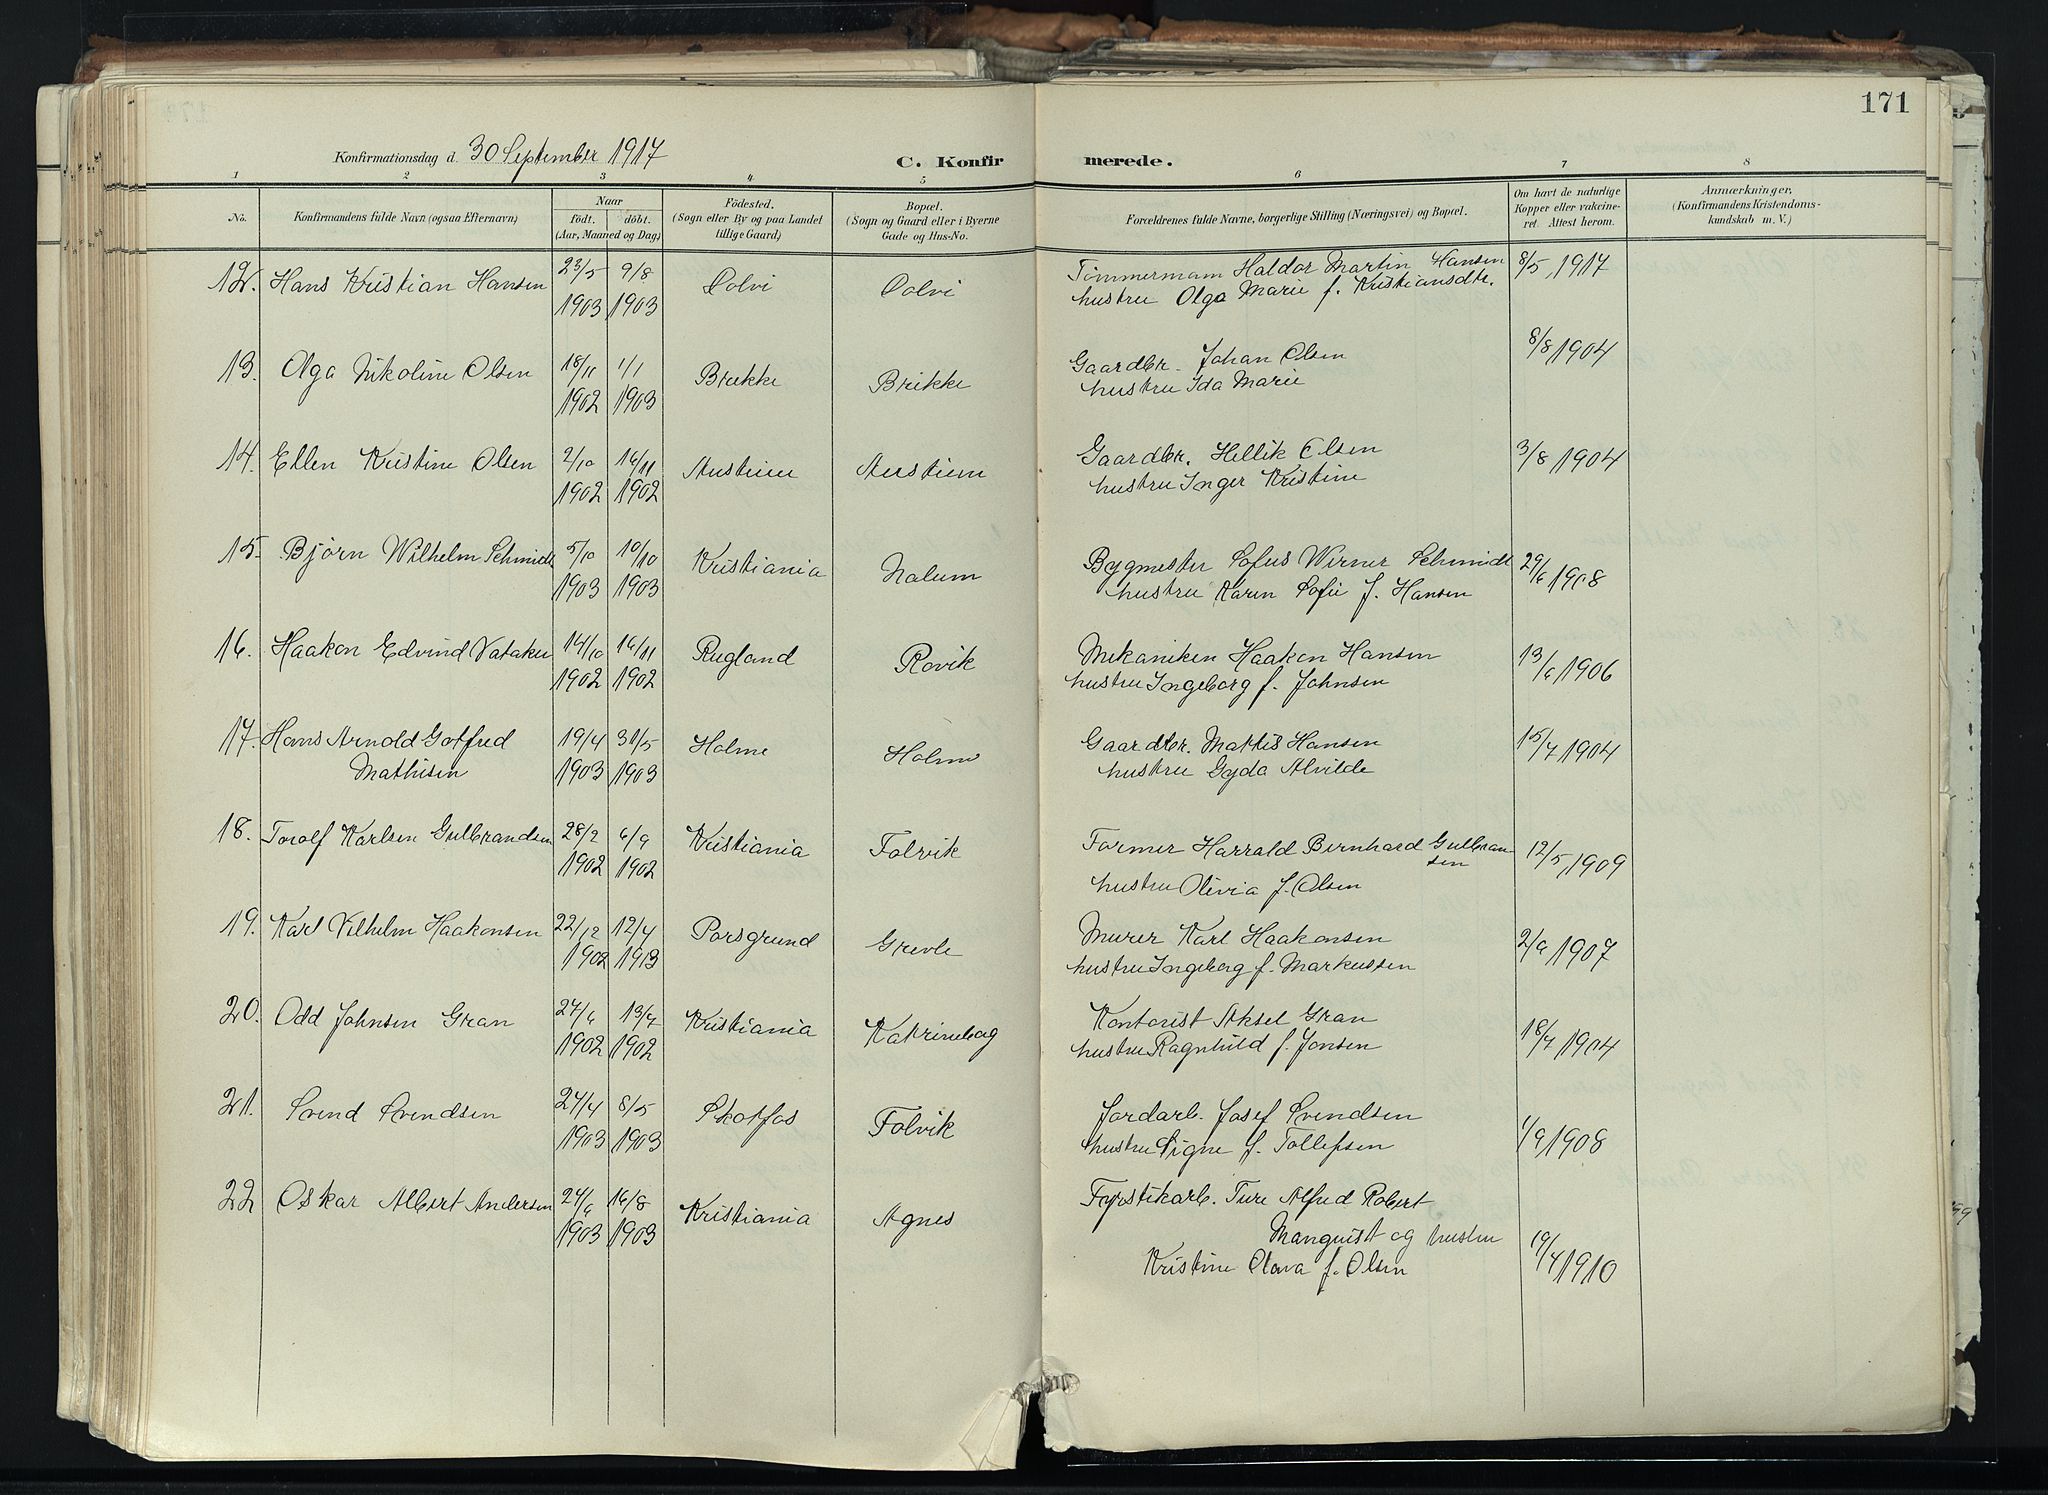 171
Konfirmationsdag d. 30 September 1917
C. Konfirmerede.
1 2 3 4 5 6 7 8
No. Konfirmandens fulde Navn (ogsaa Efternavn)
Naar
født. døbt.
(Aar, Maaned og Dag)
Födested.
(Sogn eller By og paa Landet
tillige Gaard)
Bopæl.
(Sogn og Gaard eller i Byerne
Gade og Hus-No.
Forældrenes fulde Navne, borgerlige Stilling (Næringsvei) og Bopæl.
Om havt de naturlige
Kopper eller vakcine-
ret. Attest herom.
Anmærkninger.
(Konfirmandens Kristendoms-
kundskab m. V.)
12. Hans Kristian Hansen 23/5 9/8 Solvi Solvi Tömmermann Haldor Martin Hansen 8/5 1917
1903 1903 hustru Olga Marie f. Kristiansdtr.
13. Olga Nikoline Olsen 18/11 1/1 Brekke Brekke Gaardbr. Johan Olsen 8/8 1904
1902 1903 hustru Ida Marie
14. Ellen Kristine Olsen 2/10 16/11 Gaardbr. Hellik Olsen 3/8 1904
1902 1902 hustru Inger Kristine
15. Björn Wilhelm Schmidt 5/10 10/10 Kristiania Nalum Bygmester Sofus Werner Schmidt 29/6 1908
1903 1903 hustru Karen Sofie f. Hansen
16. Haakon Edvind 14/10 16/11 Rugland Rovik Mekaniken Haakon Hansen 13/6 1906
1902 1902 hustru Ingeborg f. Johnsen
17. Hans Arnold Gotfred 19/4 31/5 Holme Holme Gaardbr. Mattis Hansen 15/7 1904
Mathisen 1903 1903 hustru Gyda Alvilde
18. Torolf Karlsen Gulbrandsen 28/2 6/9 Kristiania Folvik Former Harrald Bernhard Gulbran
sen 12/5 1909
1902 1902 hustru Olivia f. Olsen
19. Karl Vilhelm Haakonsen 22/12 12/4 Porsgrund Grevle Murer Karl Haakonsen 2/9 1907
1902 1913 hustru Ingeborg f. Markussen
20. Odd Johnsen Gran 27/6 13/7 Kristiania Katrineborg Kontorist Aksel Gran 18/7 1904
1902 1902 hustru Ragnhild f. Jonsen
21. Svend Svendsen 24/4 8/5 Skotfos Folvik Jordarb. Josef Svendsen 1/9 1908
1903 1903 hustru Signe f. Tollefsen
22 Oskar Albert Andersen 24/6 16/8 Kristiania Agnes Fyrstikarb. Ture Alfred Robert
1903 1903 Manquist og hustru 19/4 1910
Kristine Olava f. Olsen